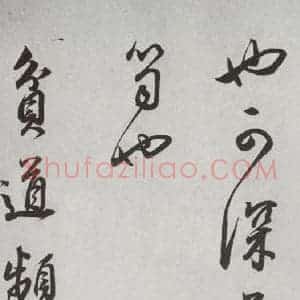 也可深
笥也
貧道頻
zhufaziliao.COM